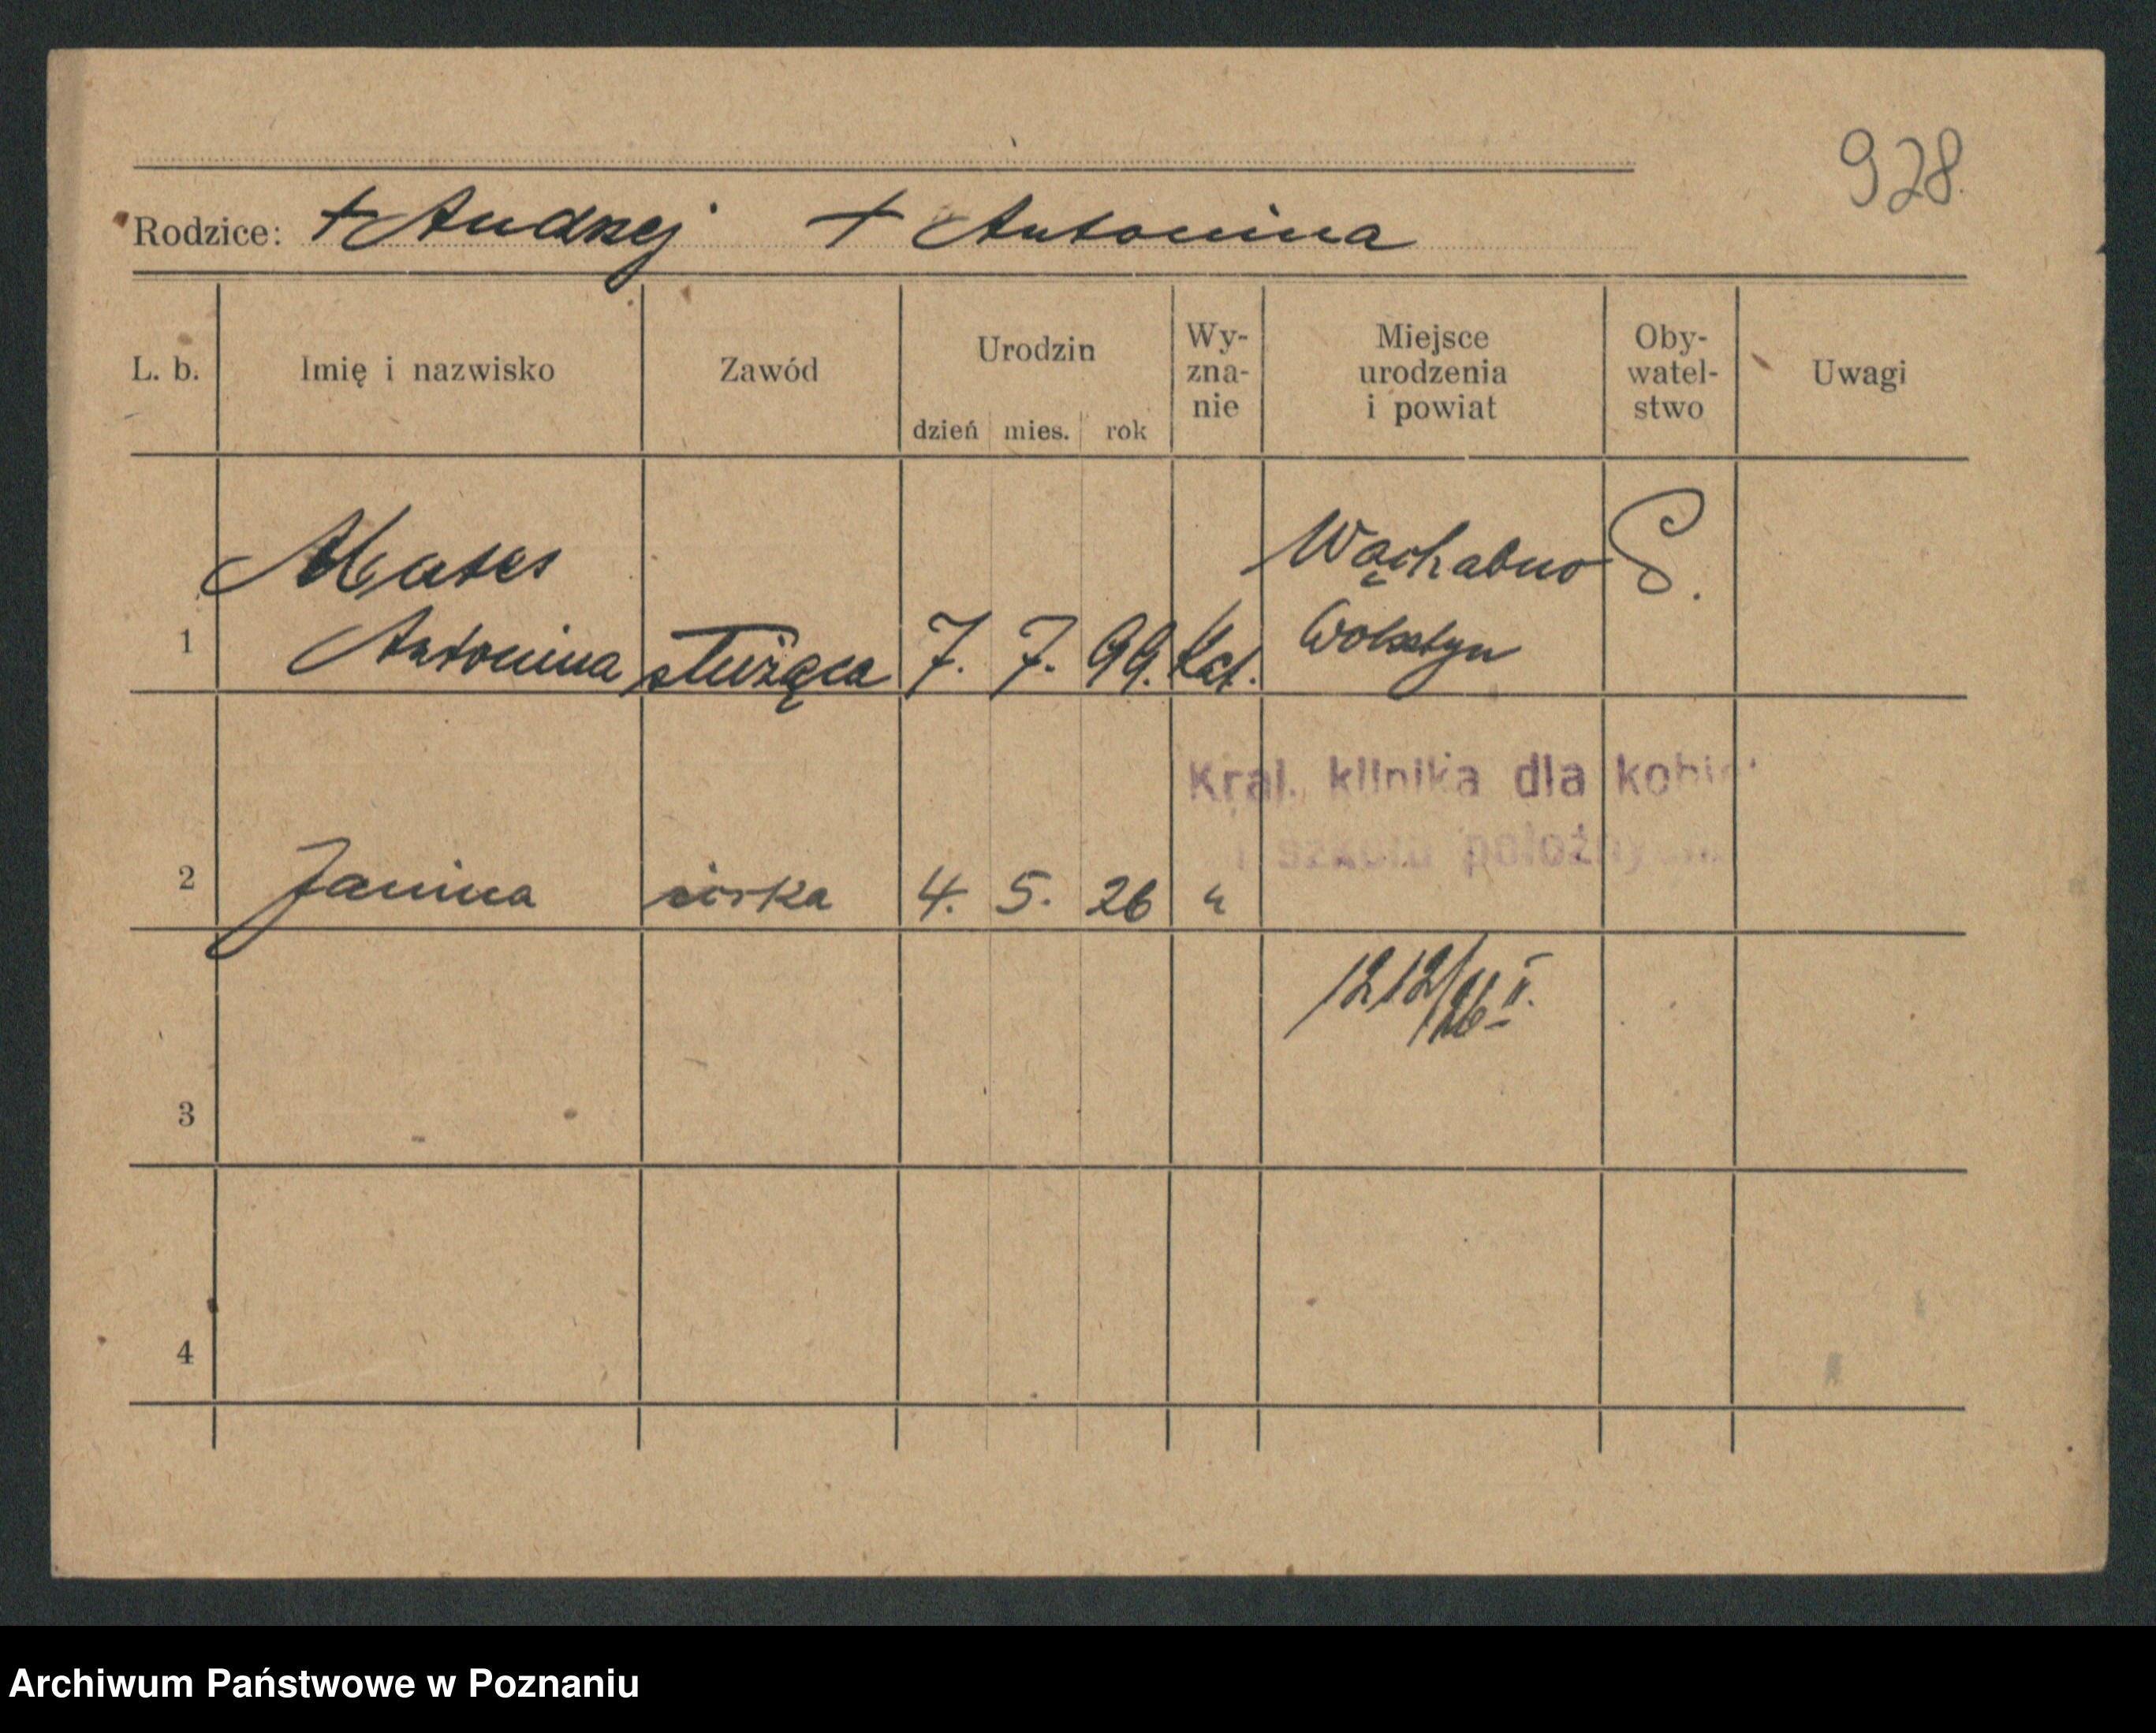 928.
Rodzice: + Andrzej + Antonina
L. b. Imię i nazwisko Zawód Urodzin dzień mies. rok Wy- zna- nie Miejsce urodzenia i powiat Oby- watel- stwo Uwagi
Wąchabno
1 Antonina służąca 7. 7. 99. kat. Wolsztyn
Kraj. klinika dla
położnych
2 Janina córka 4. 5. 26 "
1212/26 II.
3
4
Archiwum Państwowe w Poznaniu